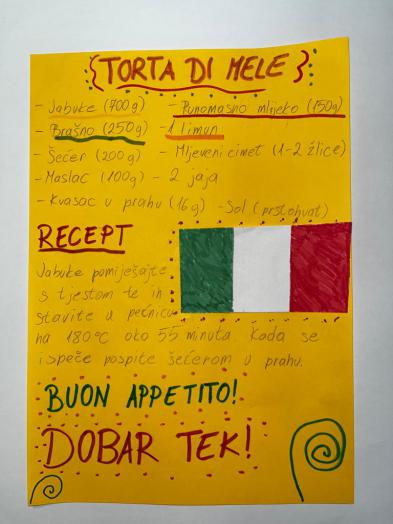 TORTA DI MELE
- Jabuke (700g) - Punomasno mlijeko (150g)
- Brašno (250g) - 1 limun
- Šećer (200g) - Mljeveni cimet (1-2 žlice)
- Maslac (100g) - 2 jaja
- Kvasac u prahu (16g) - Sol (prstohvat)
RECEPT
Jabuke pomiješajte
s tjestom te ih
stavite u pećnicu
na 180°C oko 55 minuta. Kada se
ispeče pospite šećerom u prahu.
BUON APPETITO!
DOBAR TEK!